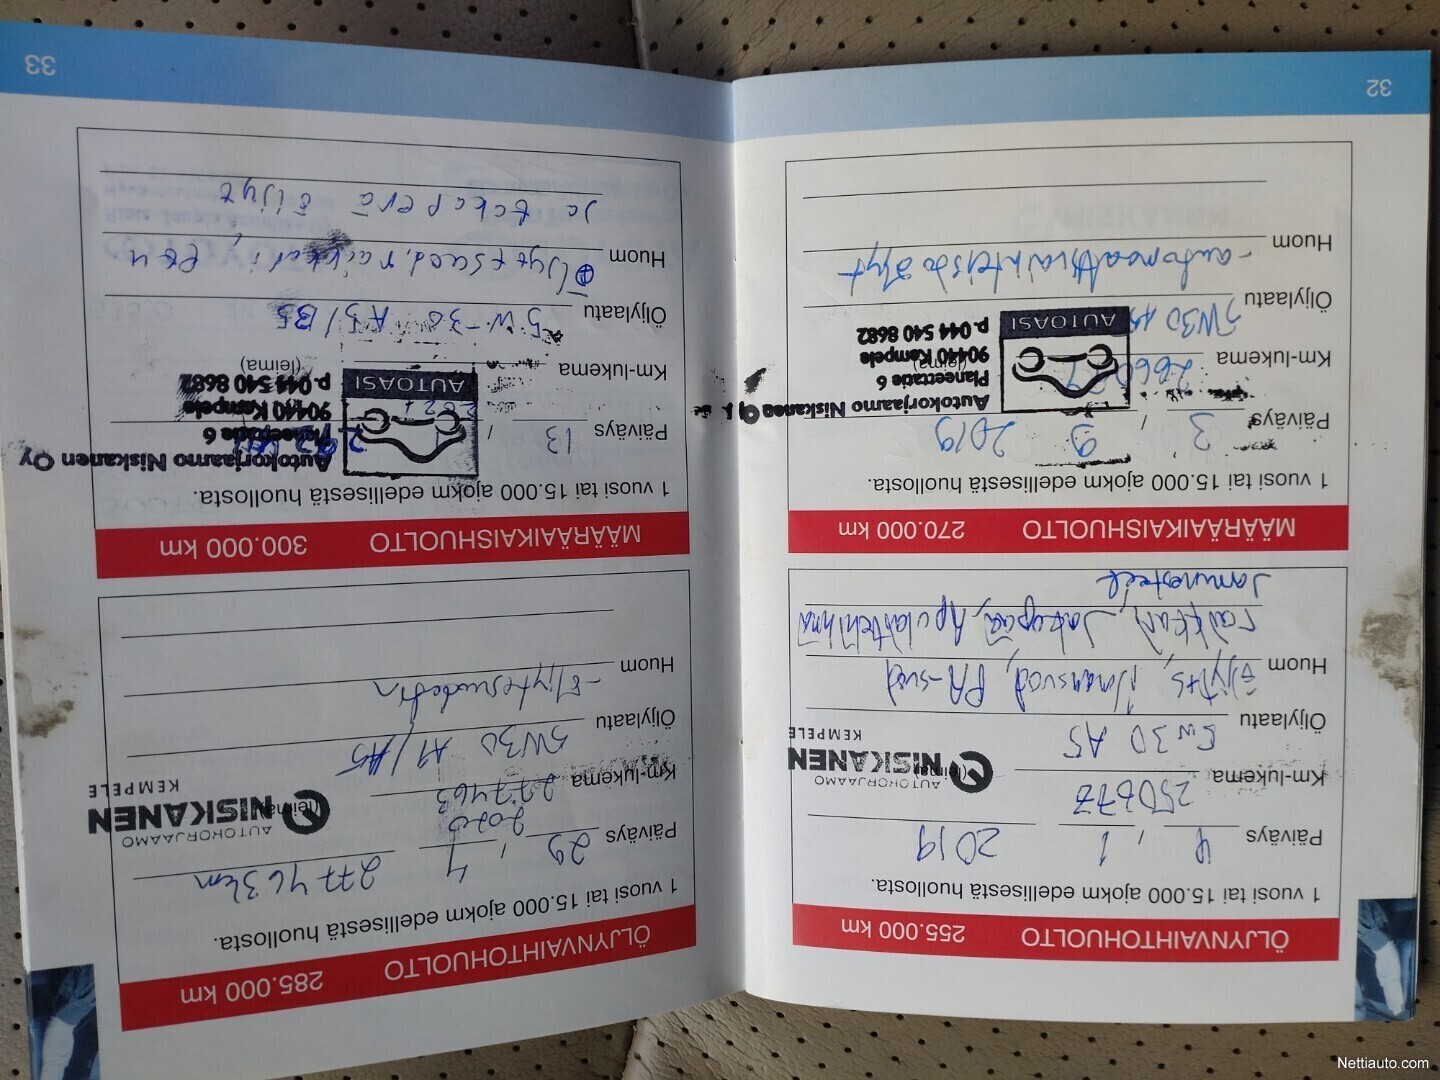 32
ÖLJYNVAIHTOHUOLTO 255.000 km
1 vuosi tai 15.000 ajokm edellisestä huollosta.
Päiväys 4 , 1 2019
Km-lukema
(leima)
AUTOKORJAAMO
NISKANEN
KEMPELE
Öljylaatu 5W30 A5
Huom Öljyt+s, ilmansuod, PA-suod
raikkari, Jakopää, Apulaitehihna
Jarrunesteet
MÄÄRÄAIKAISHUOLTO 270.000 km
1 vuosi tai 15.000 ajokm edellisestä huollosta.
Päiväys 3 , 9 2019
Km-lukema
(leima)
Autokorjaamo Niskanen Oy
Planeettatie 6
90440 Kempele
p. 044 540 8682
AUTOASI
Öljylaatu 5W30 A5
Huom -automaattivaihteisto öljyt
33
ÖLJYNVAIHTOHUOLTO 285.000 km
1 vuosi tai 15.000 ajokm edellisestä huollosta.
277463km
Päiväys 29 , 4 2020
Km-lukema 277463
(leima)
AUTOKORJAAMO
NISKANEN
KEMPELE
Öljylaatu 5W30 A1/A5
Huom -Öljyt+suodatin
MÄÄRÄAIKAISHUOLTO 300.000 km
1 vuosi tai 15.000 ajokm edellisestä huollosta.
Päiväys 13 ,
Km-lukema
(leima)
Autokorjaamo Niskanen Oy
Planeettatie 6
90440 Kempele
p. 044 540 8682
AUTOASI
Öljylaatu 5W-30 A5/B5
Huom Öljyt+suod, raikkari, etu
ja takaperä öljyt
Nettiauto.com